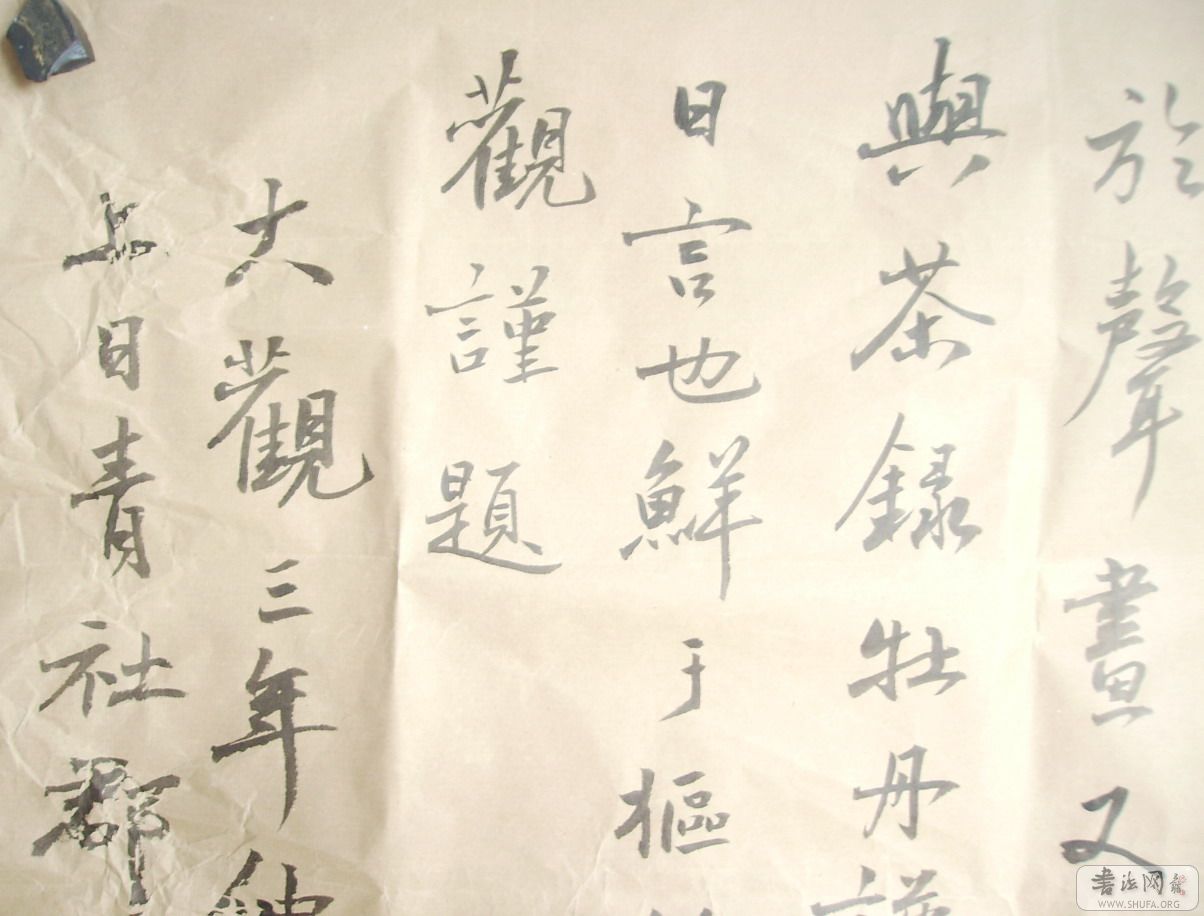 於聲畫又
與茶錄牡丹譜
日言也鮮于樞
觀謹題
大觀三年仲
上日青社郡
書法网
WWW.SHUFA.ORG